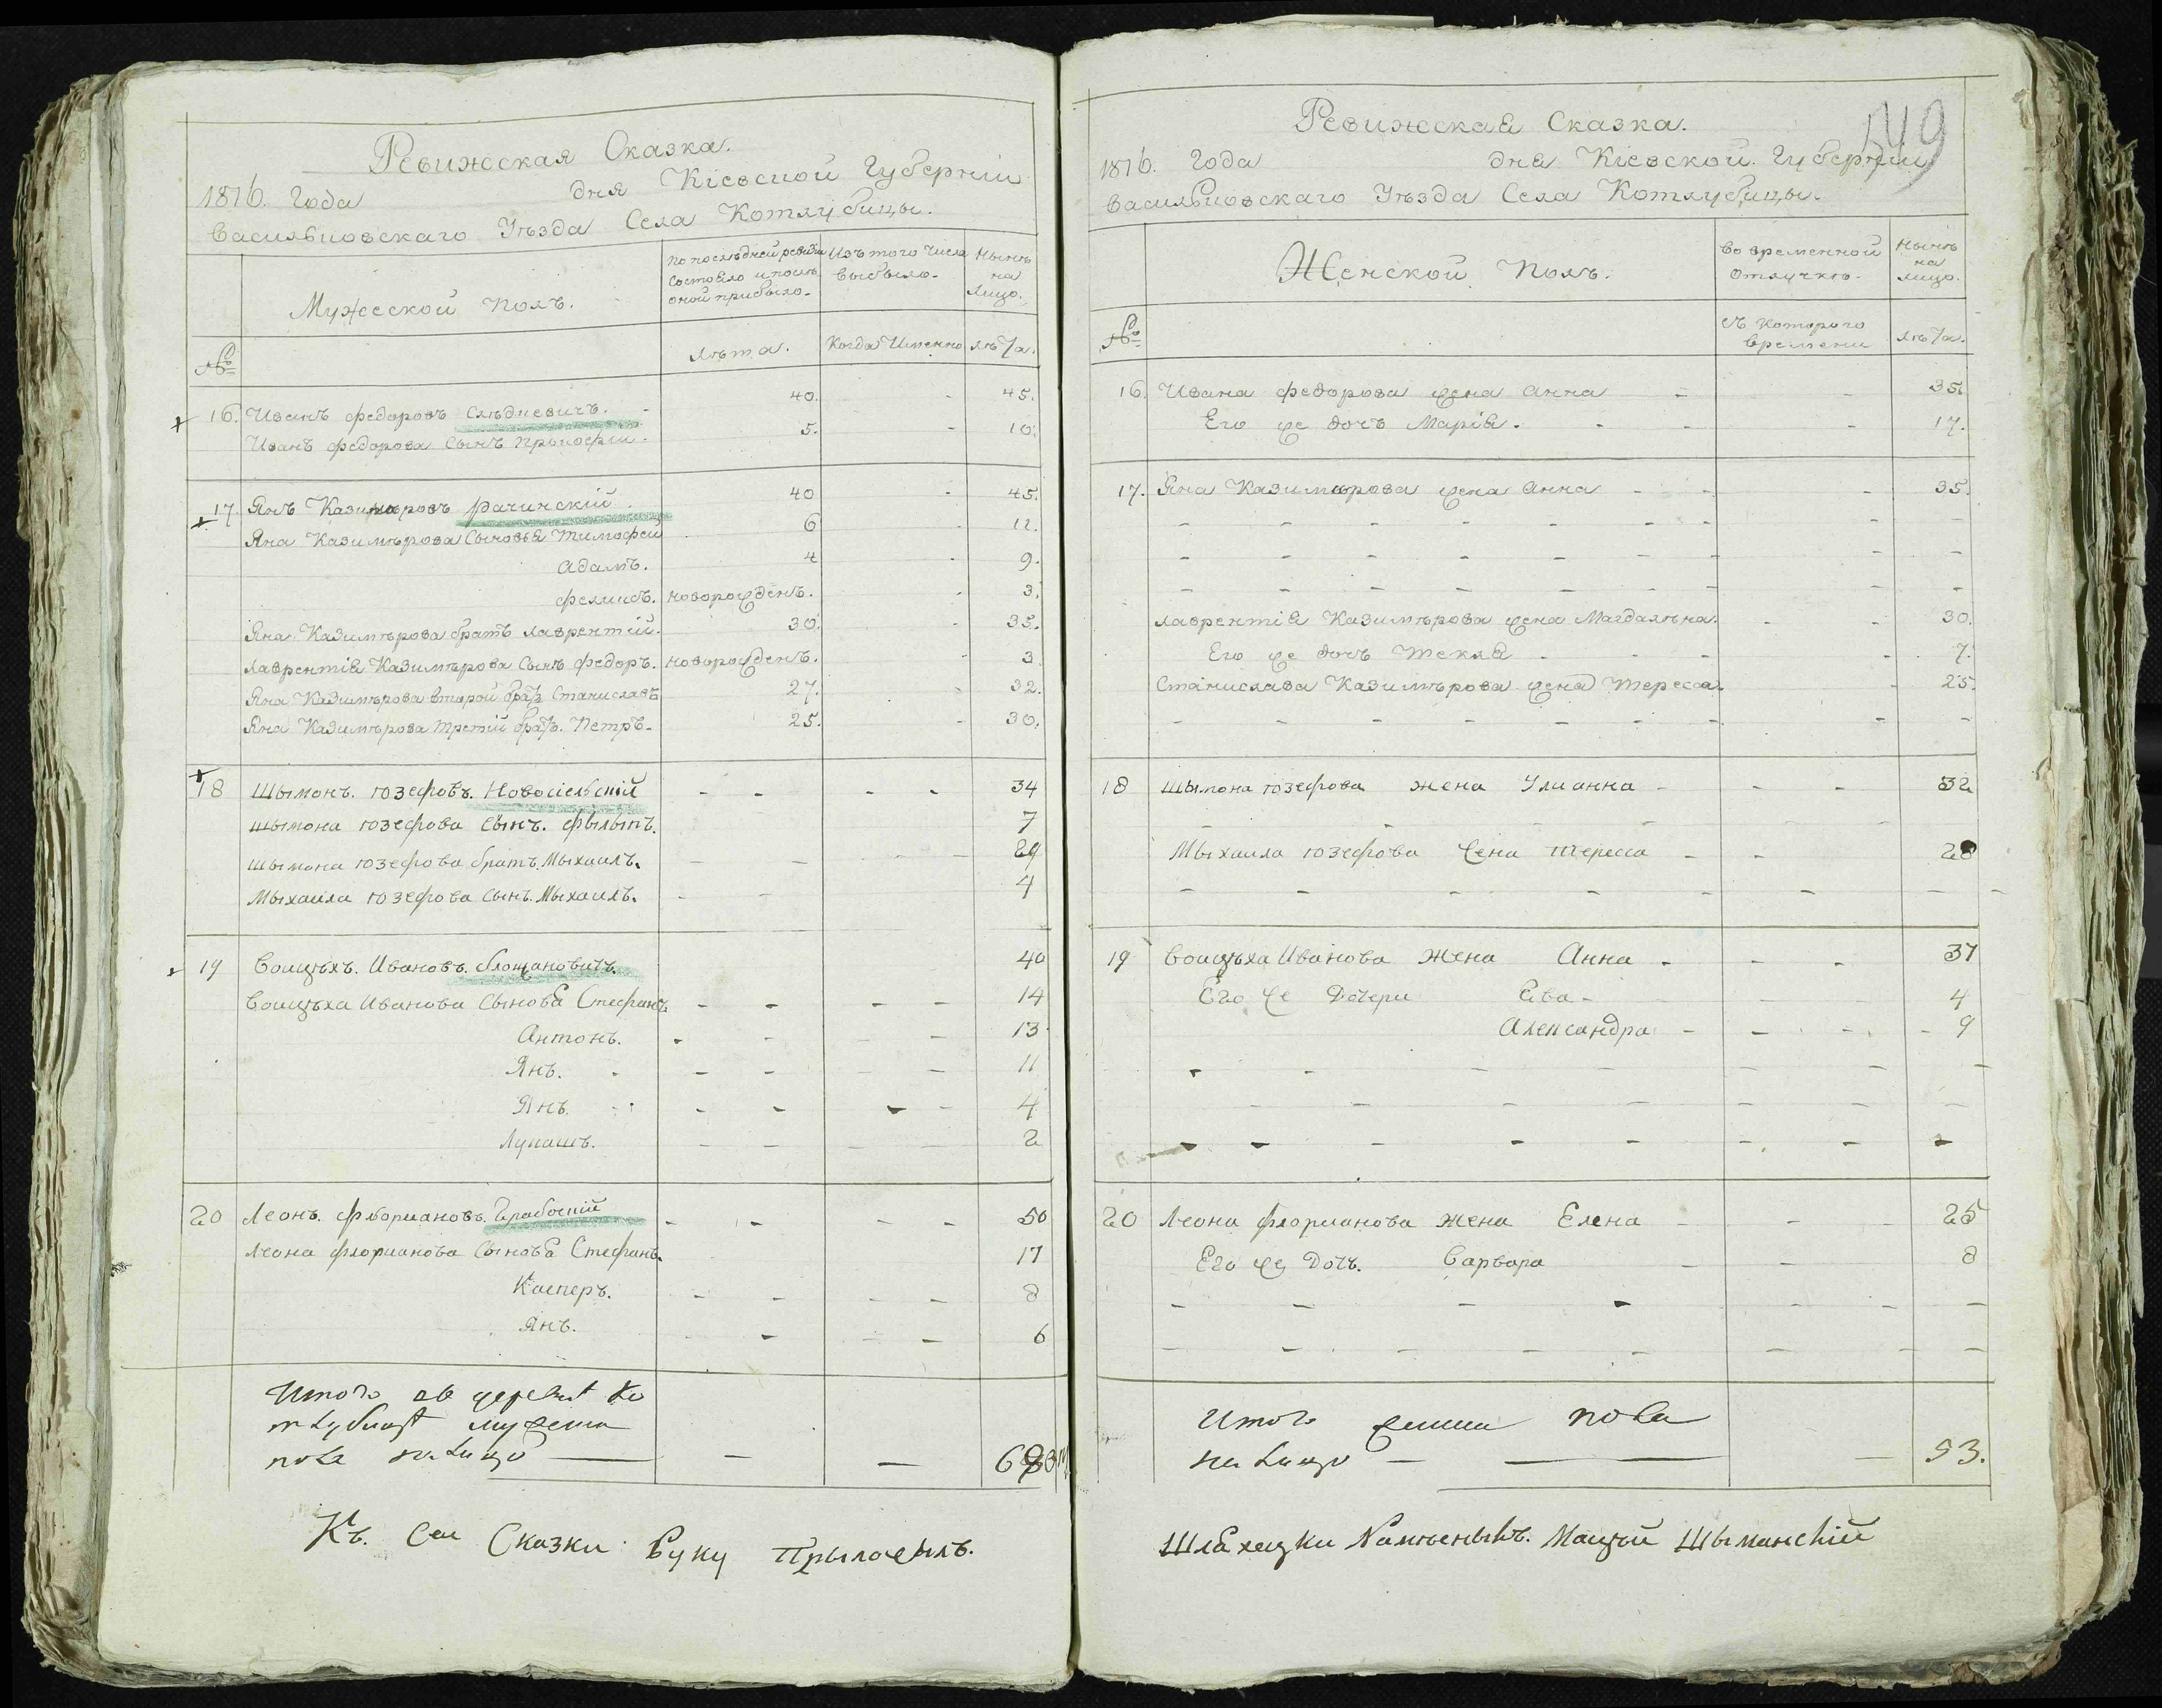 Ревижская Сказка.
1816. Года дня Кіевской Губерніи
Васильковскаго Уѣзда Села Котлубицы.
№
Мужеской Полъ.
По послѣдней ревизіи состояло и послѣ оной прибыло.
Изъ того числа выбыло.
Нынѣ на лицо.
лѣта.
Когда Именно
лѣта.
16. Иванъ Федоровъ Слѣдневичъ. - 40. - 45.
Иванъ Федорова Сынъ Прокофій. 5. - 10.
17 Янъ Казимѣровъ Рачинскій. 40 - 45.
Яна Казимѣрова Сыновья Тимофей 6 - 11.
Адамъ. 4 - 9.
Феликсъ. новорожденъ. - 3.
Яна Казимѣрова братъ Лаврентій. 30. - 35.
Лаврентія Казимѣрова Сынъ Федоръ. новорожденъ. - 3
Яна Казимѣрова второй братъ Станиславъ 27. - 32.
Яна Казимѣрова третій братъ. Петръ. 25. - 30.
18 Шымонъ. Юзефовъ. Новосіельскій - - - - 34
Шымона Юзефова Сынъ. Фылыпъ. 7
Шымона Юзефова братъ. Мыхаилъ. - - - - 29
Мыхаила Юзефова Сынъ. Мыхаилъ. - - 4
19 Воицѣхъ. Ивановъ. 40
Воицѣха Иванова Сыновья Стефанъ - - - - 14
Антонъ. - - - - 13
Янъ. - - - - - 11
Янъ. - - - - - 4
Лукашъ. - - - - 2
20 Леонъ. Флориановъ. Грабоскій - - - - 50
Леона Флорианова Сыновья Стефанъ. 17
Касперъ. - - - - 8
Янъ. - - - - 6
Итого въ деревнѣ Ко
тлубицѣ мужеска
пола на лицо — — — 68
Къ. Сеи Сказки Руку Прыложылъ.
149
Ревижская Сказка.
1816. Года дня Кіевской Губерніи
Васильковскаго Уѣзда Села Котлубицы.
№
Женской Полъ.
Во временной отлучкѣ.
Нынѣ на лицо.
съ которого времени
лѣта.
16. Ивана Федорова жена Анна - - 35.
Его же дочъ Марія. - - - 17.
17. Яна Казимѣрова жена Анна - - - 35.
- - - - - - - - -
- - - - - - - - -
- - - - - - - - -
Лаврентія Казимѣрова жена Магдалѣна. - - 30.
Его же дочъ Текля - - - - 7.
Станислава Казимѣрова жена Тересса. - 25.
- - - - - - - - -
18 Шымона Юзефова жена Улианна - - - 32
- - - - -
Мыхаила Юзефова жена Тересса - - 28
- - - - - - - -
19 Воицѣха Иванова Жена Анна - - - 37
Его же Дочери Ева - 4
Александра - - - - 9
- - - - - - - -
- - - - - - -
- - - - - - - -
20 Леона Флорианова жена Елена - - - 25
Его же Дочъ. Варвара - - 8
- - - - - - -
- - - - - - - - -
Итого женска пола
на лицо — — — 53.
Шляхецки Мацѣй Шыманскій